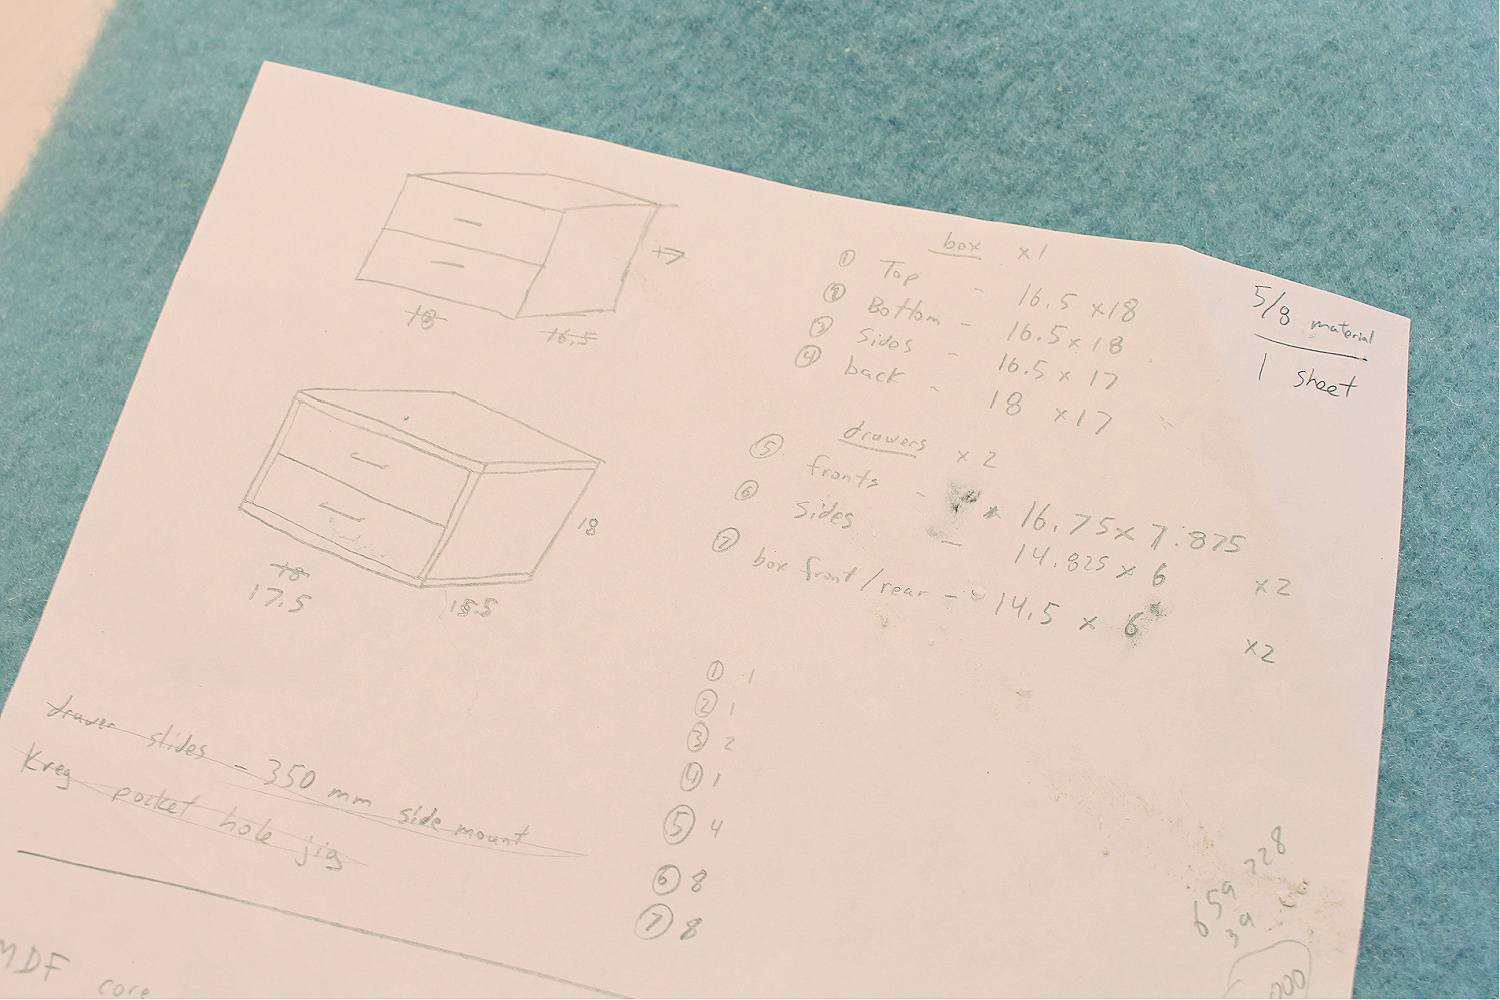 17
18
16.5
18
18
17.5
15.5
box x1
① Top - 16.5 x 18
② Bottom - 16.5 x 18
③ sides - 16.5 x 17
④ back - 18 x 17
5/8 material
1 sheet
drawers x 2
⑤ fronts - 16.75 x 7.875
⑥ sides - 14.825 x 6 x2
⑦ box front/rear - 14.5 x 6 x2
① 1
② 1
③ 2
④ 1
⑤ 4
⑥ 8
⑦ 8
drawer slides - 350 mm side mount
Kreg pocket hole jig
MDF core
728
659
39
000